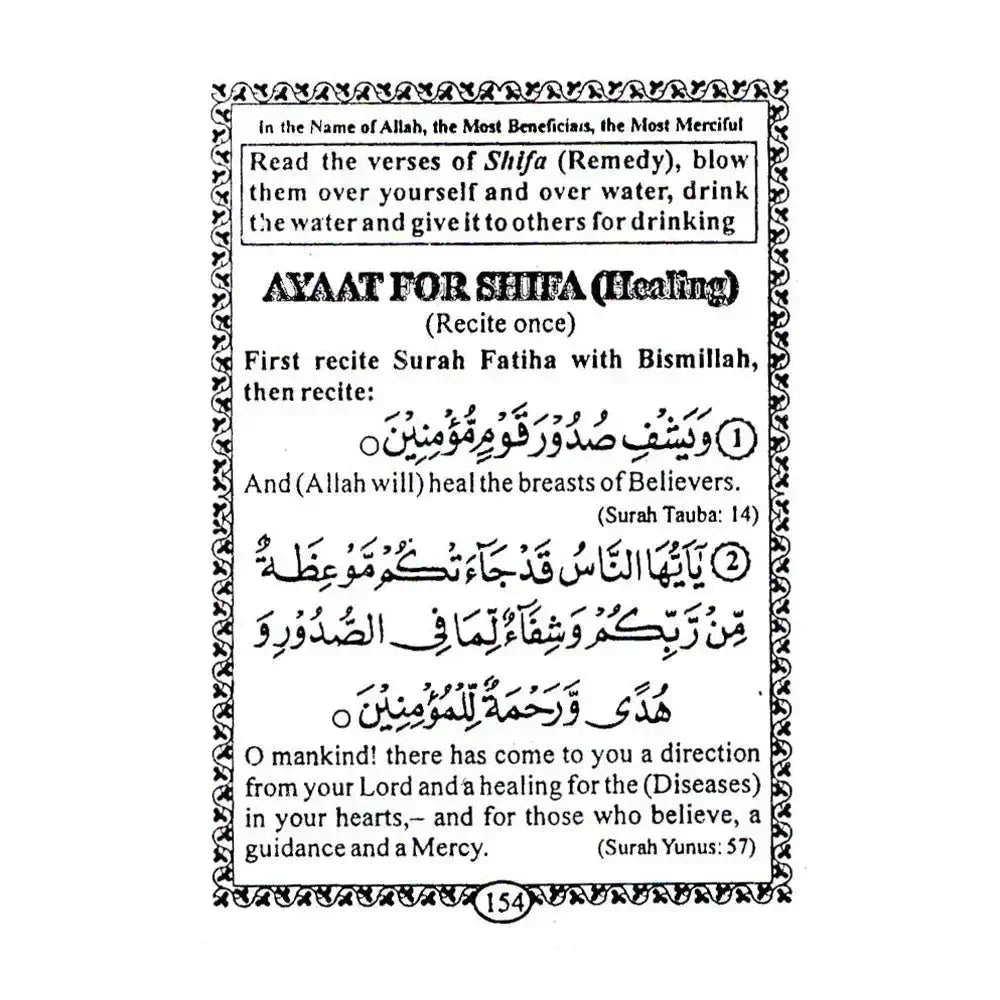 In the Name of Allah, the Most Beneficiais, the Most Merciful
Read the verses of Shifa (Remedy), blow
them over yourself and over water, drink
the water and give it to others for drinking
AYAAT FOR SHIFA (Healing)
(Recite once)
First recite Surah Fatiha with Bismillah,
then recite:
① وَيَشْفِ صُدُوْرَ قَوْمٍ مُّؤْمِنِيْنَ ○
And (Allah will) heal the breasts of Believers.
(Surah Tauba: 14)
② يٰٓاَيُّهَا النَّاسُ قَدْ جَآءَتْكُمْ مَّوْعِظَةٌ
مِّنْ رَّبِّكُمْ وَشِفَآءٌ لِّمَا فِى الصُّدُوْرِ وَ
هُدًى وَّرَحْمَةٌ لِّلْمُؤْمِنِيْنَ ○
O mankind! there has come to you a direction
from your Lord and a healing for the (Diseases)
in your hearts,– and for those who believe, a
guidance and a Mercy. (Surah Yunus: 57)
154